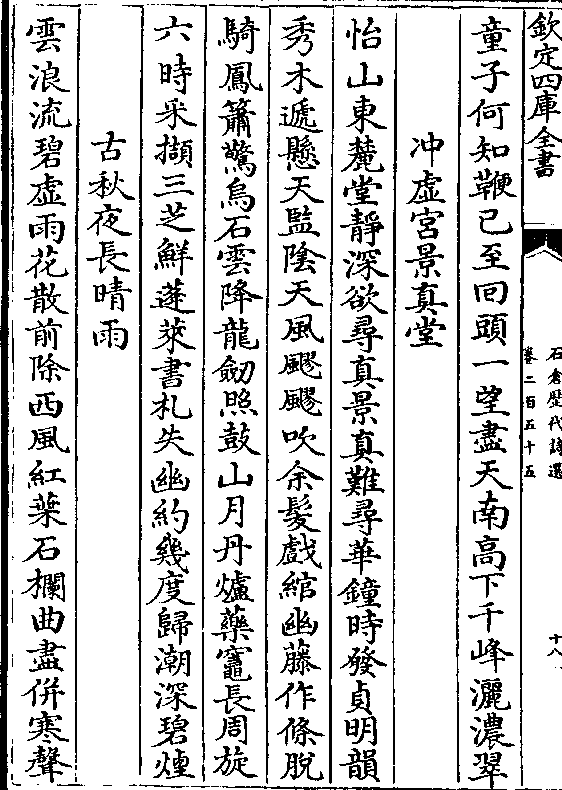 欽定四庫全書
石倉歷代詩選
卷二百五十五
十八
童子何知鞭已至回頭一望盡天南高下千峰灑濃翠
冲虛宮景真堂
怡山東麓堂靜深欲尋真景真難尋華鐘時發貞明韻
秀木遞懸天監陰天風飂飂吹余髮戲綰幽藤作條脫
騎鳳簫驚烏石雲降龍劒照鼓山月丹爐藥竈長周旋
六時采擷三芝鮮蓬萊書札失幽約幾度歸潮深碧煙
古秋夜長晴雨
雲浪流碧虛雨花散前除西風紅葉石欄曲盡倂寒聲